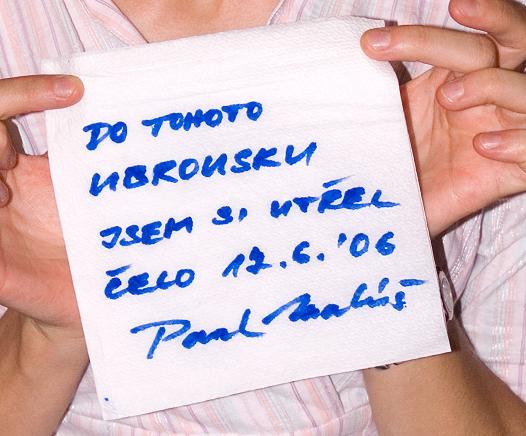 DO TOHOTO
UBROUSKU
JSEM SI UTŘEL
ČELO 17.6.'06
Pavel